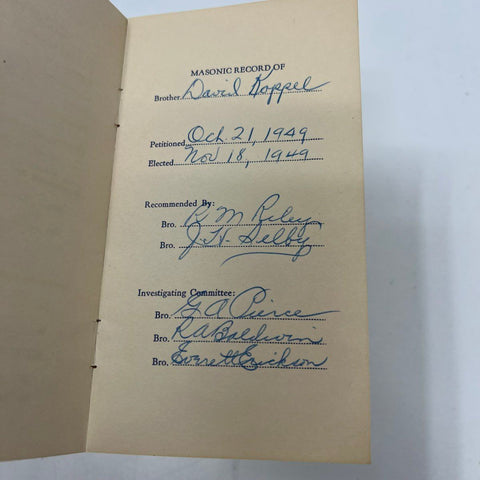 MASONIC RECORD OF
Brother David Koppel
Petitioned Oct. 21, 1949
Elected Nov 18, 1949
Recommended By:
Bro. M Riley
Bro. J. H. Selby
Investigating Committee:
Bro. G A Pierce
Bro. R A Baldwin
Bro. Everett Erickson